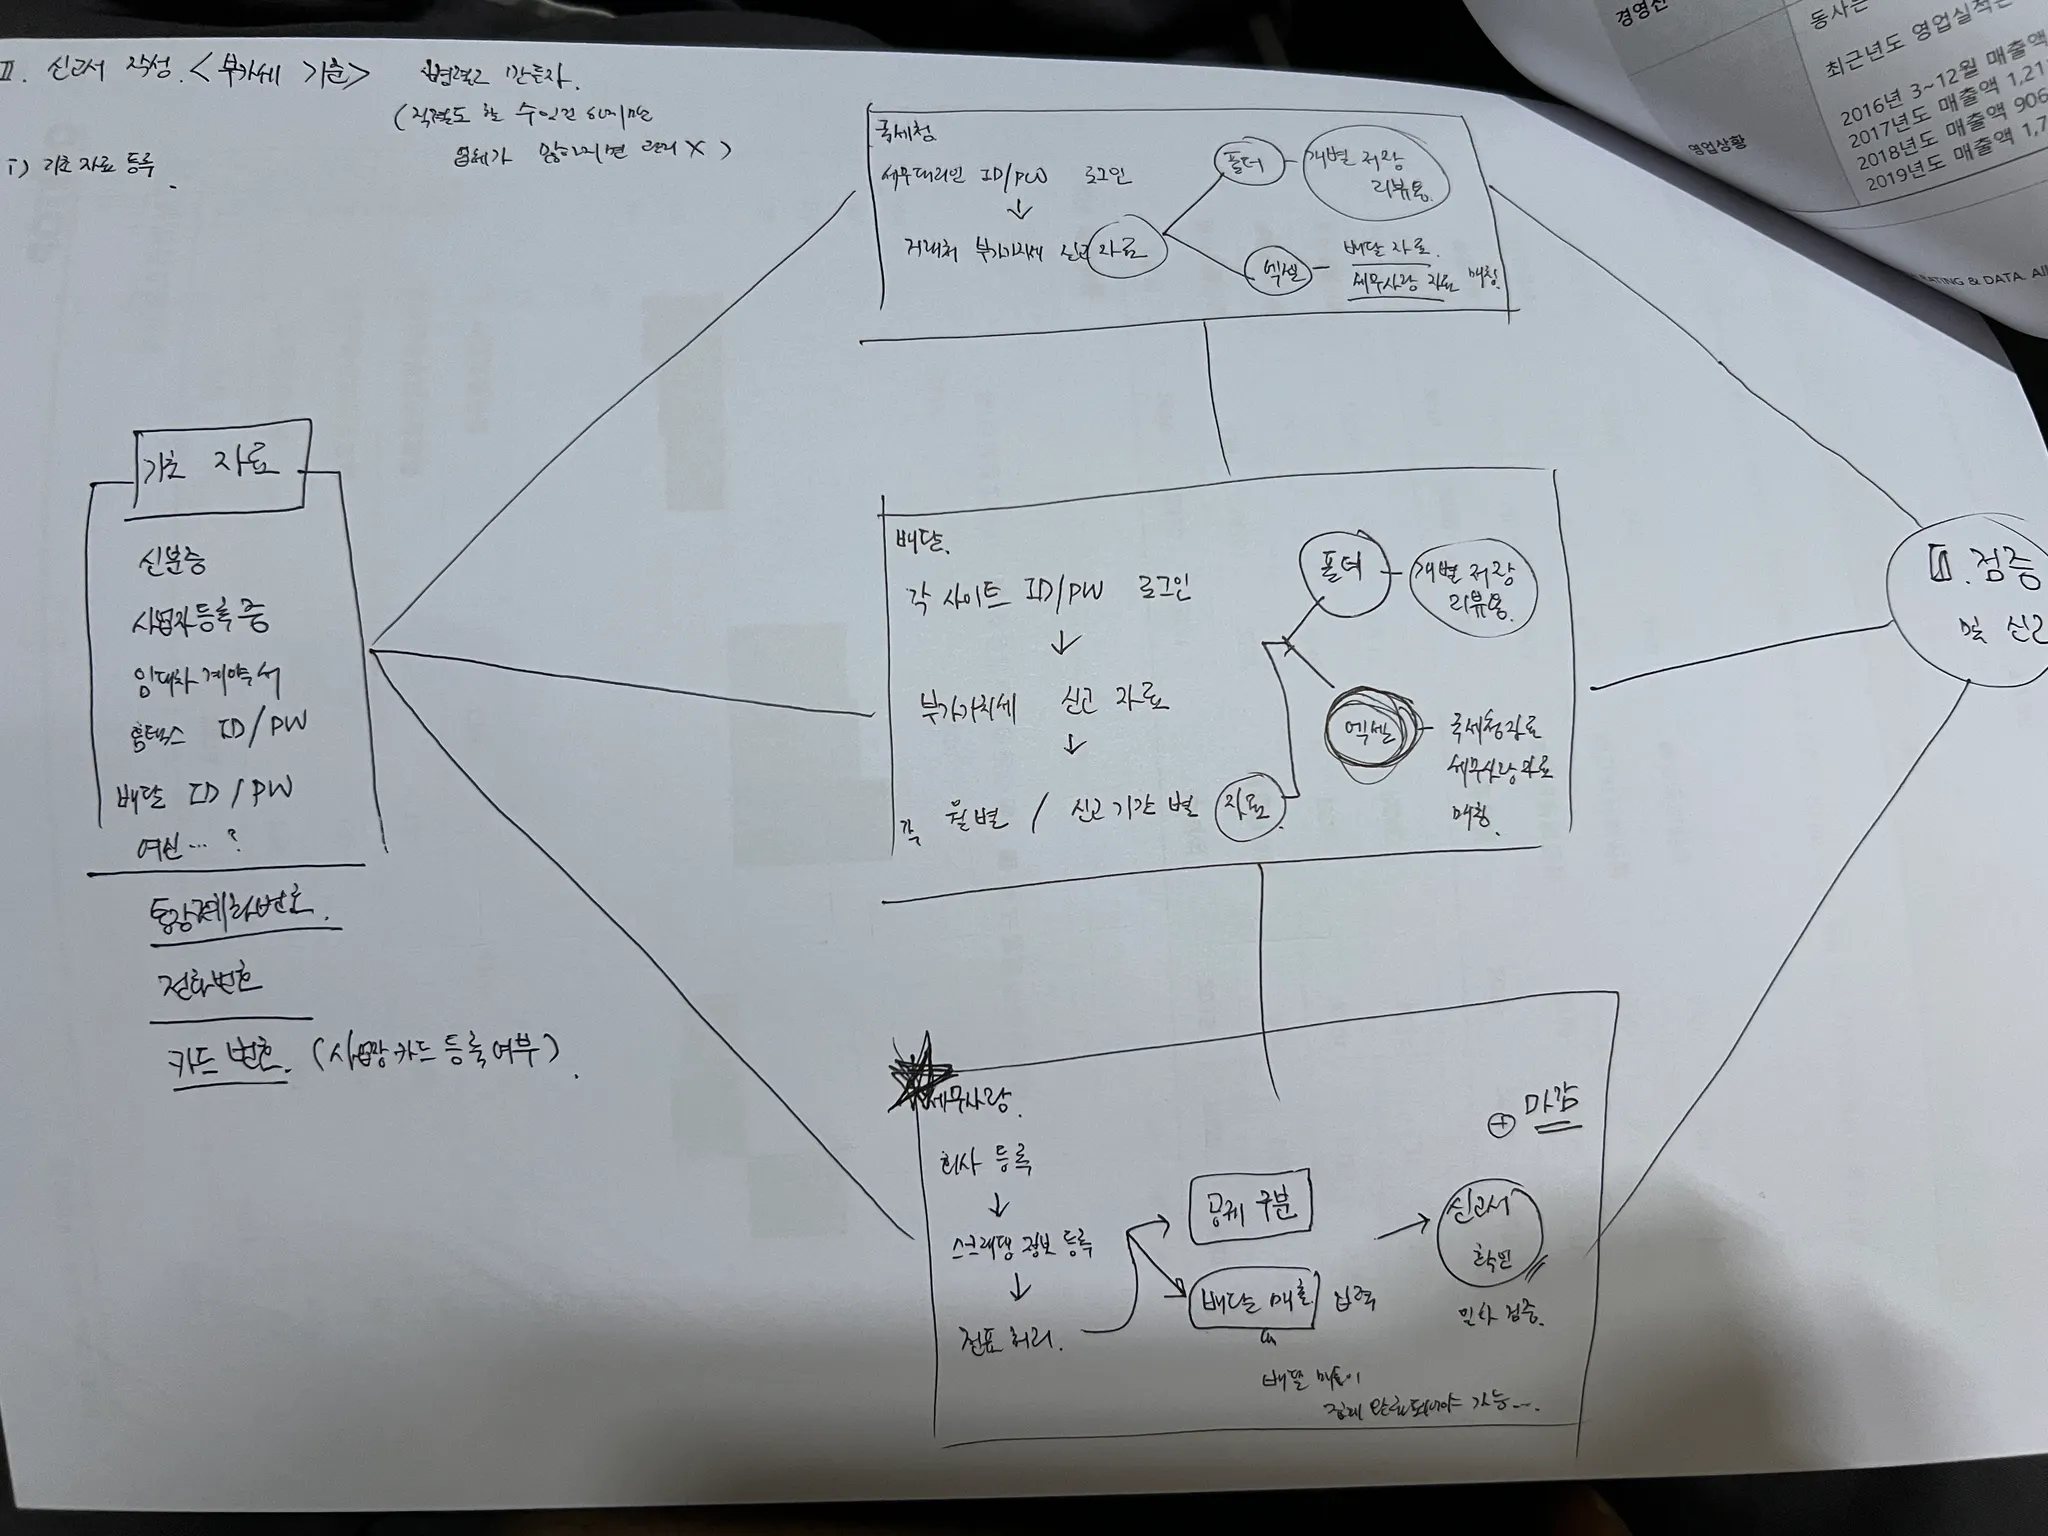 Ⅱ. 신고서 작성. <부가세 기준> 병렬로 만들자.
(직렬도 할 수 있건
업체가 많아지면 관리 X)
i) 기초 자료 등록.
기초 자료
신분증
사업자등록증
임대차계약서
홈택스 ID/PW
배달 ID/PW
여신... ?
통장계좌번호.
전화번호
카드 번호. (사업장 카드 등록 여부).
국세청
세무대리인 ID/PW 로그인
↓
거래처 부가가치세 신고 자료
폴더 - 개별 저장
리뷰용.
엑셀 - 배달 자료.
세무사랑 자료 매칭.
배달.
각 사이트 ID/PW 로그인
↓
부가가치세 신고 자료
↓
각 월별 / 신고기간 별 자료.
폴더 - 개별 저장
리뷰용.
엑셀 - 국세청자료
세무사랑자료
매칭.
세무사랑.
회사 등록
↓
스크래핑 정보 등록
↓
전표 처리.
공제 구분
배달 매출 입력
배달 매출이
가능...
⊕ 마감
신고서
확인
일차 검증.
Ⅲ. 검증
및 신고
경영진
동사는
최근년도 영업실적은
영업상황
2016년 3~12월 매출액
2017년도 매출액 1,21
2018년도 매출액 906
2019년도 매출액 1,7
RATING & DATA. All